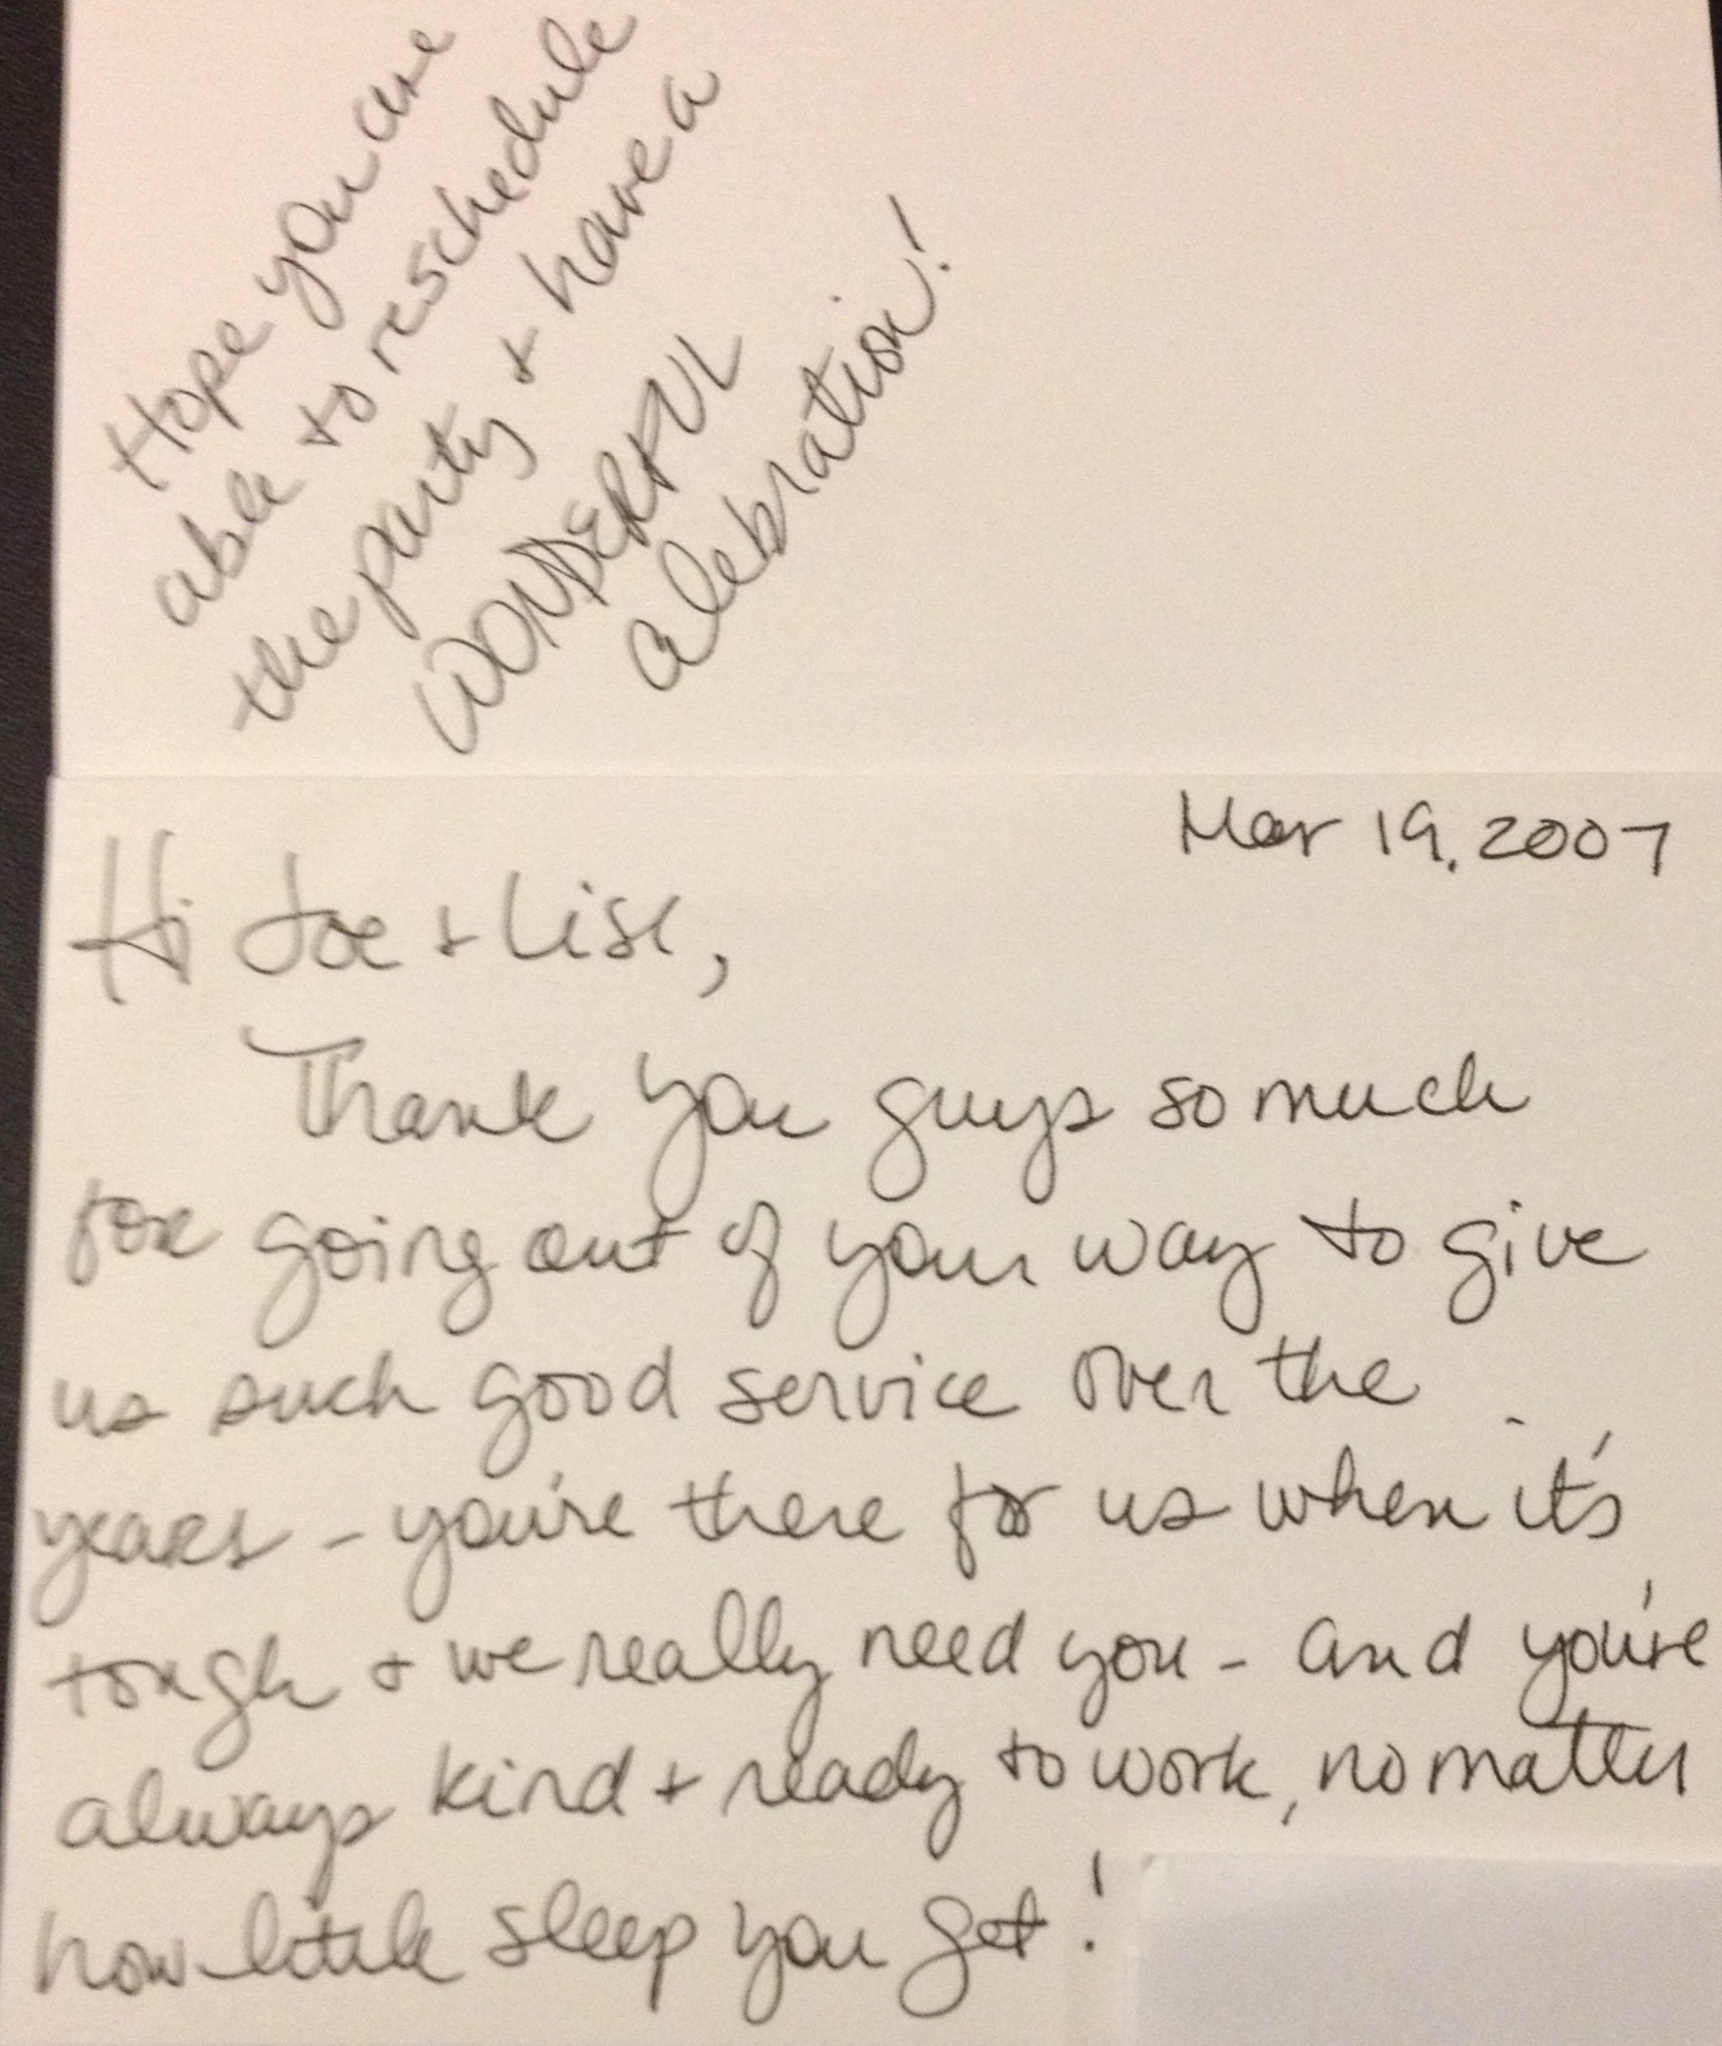 Hope you are
able to reschedule
the party + have a
WONDERFUL
celebration!
Mar 19, 2007
Hi Joe + Lise,
Thank you guys so much
for going out of your way to give
us such good service over the
years - you're there for us when it's
tough + we really need you - and you're
always kind + ready to work, no matter
how little sleep you get!